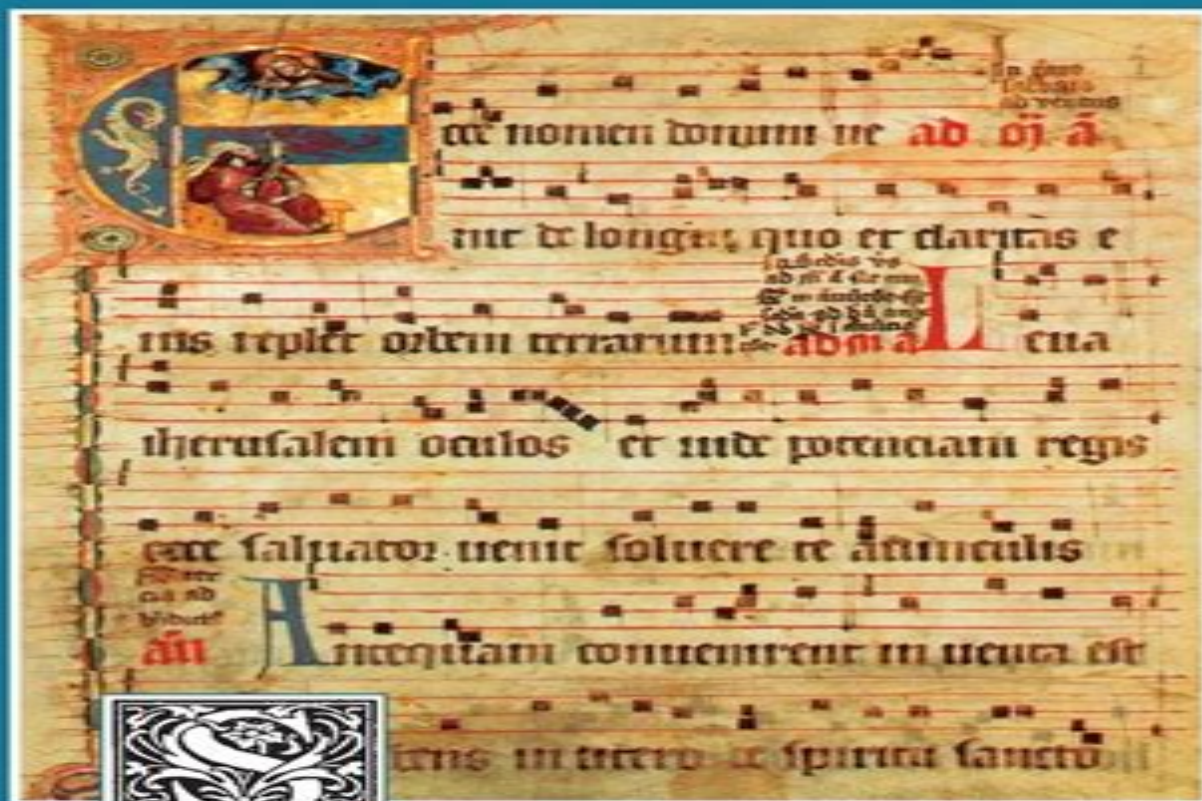 cce nomen domini ue ad
nit de longin quo et claritas e
ius replet orbem terrarum ad m a Leua
iherusalem oculos et uide potenciam regis
ecce saluator uenit soluere te a uinculis
an Antequam conuenirent in uenta est
iens in utero de spiritu sancto